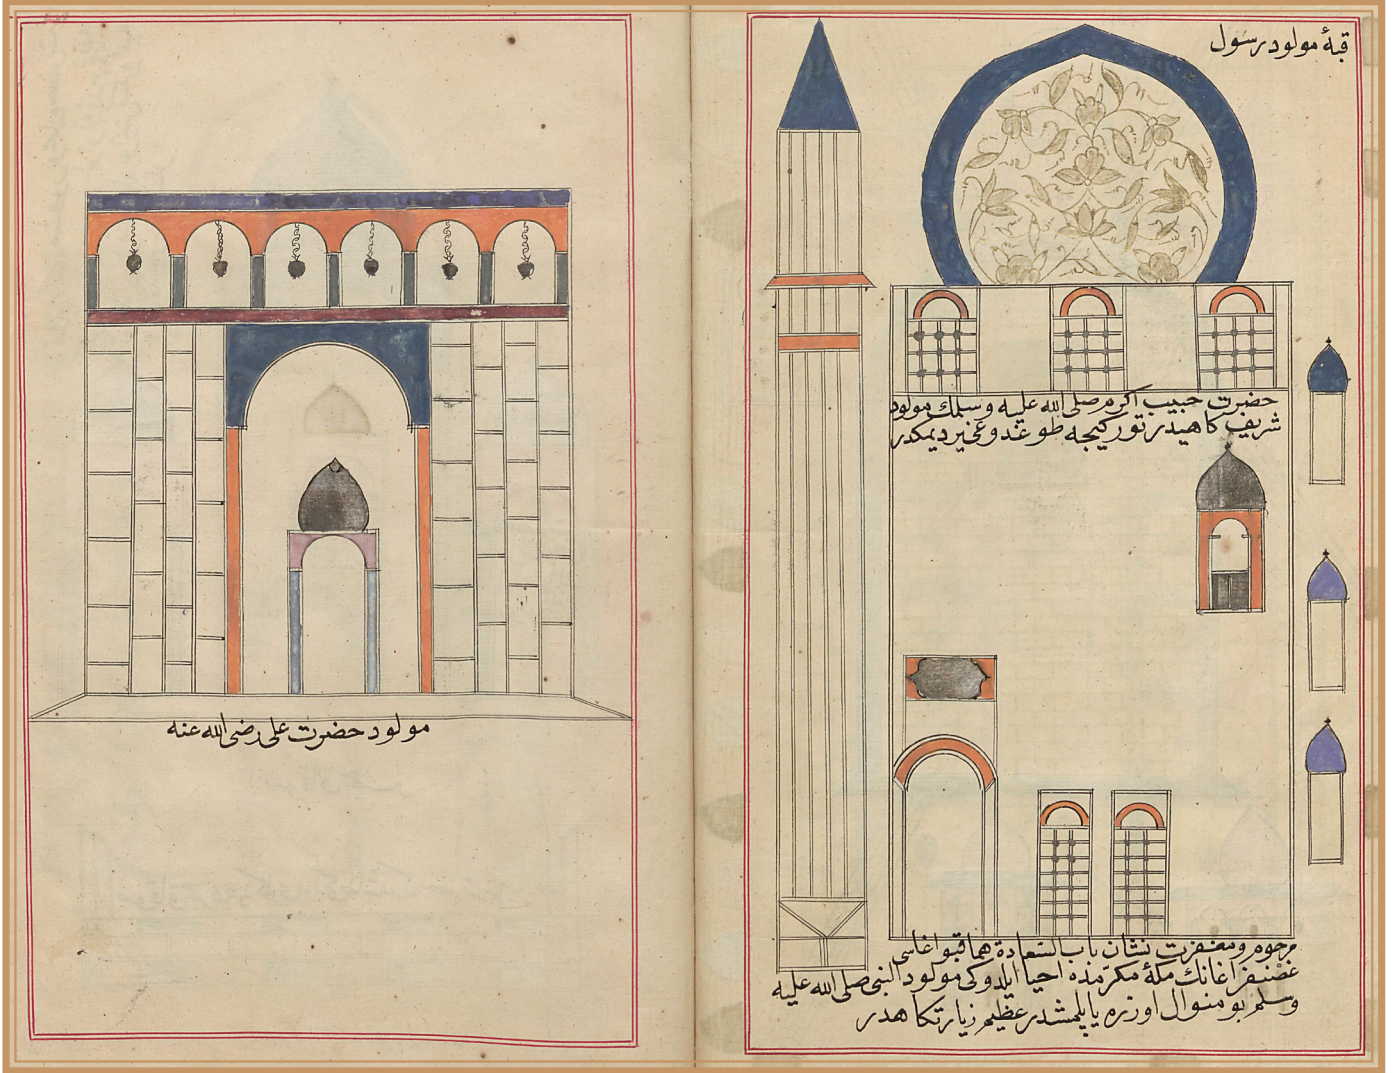 قبهٔ مولود رسول
حضرت حبيب اكرم صلى الله عليه وسلمك مولود
شريف كاهيدر نور كيجه طوغدوغى يرديمكدر
مرحوم ومغفرت نشان باب السعادة هم قبو اغاسى
غضنفر اغانك مكهٔ مكرمه‌ده احيا ايلدوكى مولود النبى صلى الله عليه
وسلم بو منوال اوزره يا پلمشدر عظيم زيارتكاهدر
مولود حضرت على رضى الله عنه